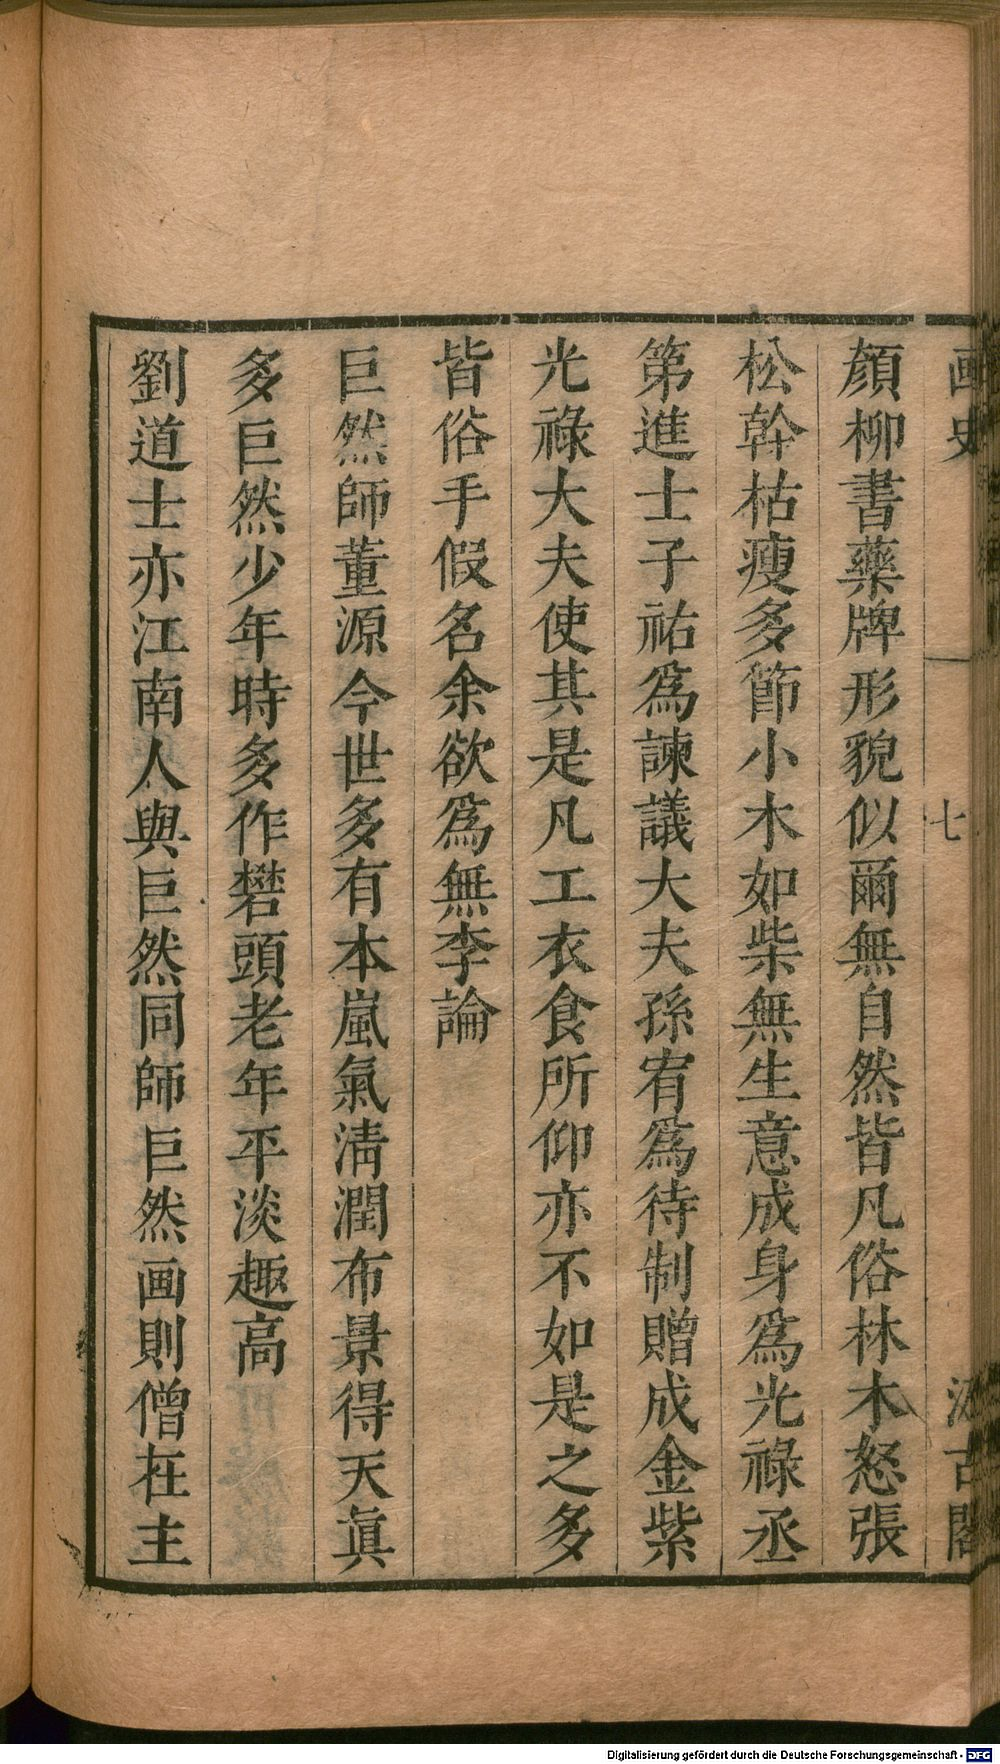 画史
七
汲古閣
顏柳書藥牌形貌似爾無自然皆凡俗林木怒張
松幹枯瘦多節小木如柴無生意成身爲光祿丞
第進士子祐爲諫議大夫孫宥爲待制贈成金紫
光祿大夫使其是凡工衣食所仰亦不如是之多
皆俗手假名余欲爲無李論
巨然師董源今世多有本嵐氣淸潤布景得天眞
多巨然少年時多作礬頭老年平淡趣高
劉道士亦江南人與巨然同師巨然画則僧在主
Digitalisierung gefördert durch die Deutsche Forschungsgemeinschaft - DFG